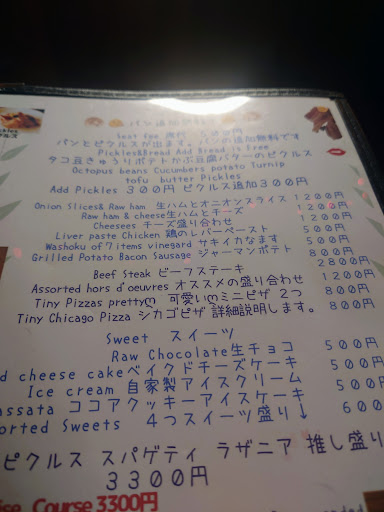 パン追加無料
Seat Cge 席代 500円
パンとピクルスが出ます。パンの追加無料です
Pickles&Bread Add Bread is free
タコ豆きゅうりポテトかぶ豆腐バターのピクルス
Octopus beans Cucumbers potato Turnip
tofu butter Pickles
Add Pickles 300円 ピクルス追加300円
Onion Slices& Raw ham 生ハムとオニオンスライス 1200円
Raw ham & cheese生ハムとチーズ 1200円
Cheesees チーズ盛り合わせ 1200円
Liver paste Chicken 鶏のレバーペースト 500円
Washoku of 7 items vinegard サキイカなます 500円
Grilled Potato Bacon Sausage ジャーマンポテト 800円
Beef Steak ビーフステーキ 2800円
Assorted hors d'oeuvres オススメの盛り合わせ 1200円
Tiny Pizzas pretty♡ 可愛い♡ミニピザ 2つ 800円
Tiny Chicago Pizza シカゴピザ 詳細説明します。 800円
Sweet スイーツ
Raw Chocolate生チョコ 500円
d cheese cakeベイクドチーズケーキ 500円
Ice cream 自家製アイスクリーム 500円
assata ココアクッキーアイスケーキ 500
orted Sweets 4つスイーツ盛り↓ 600
ピクルス スパゲティ ラザニア 推し盛り
3300円
ise Course 3300円